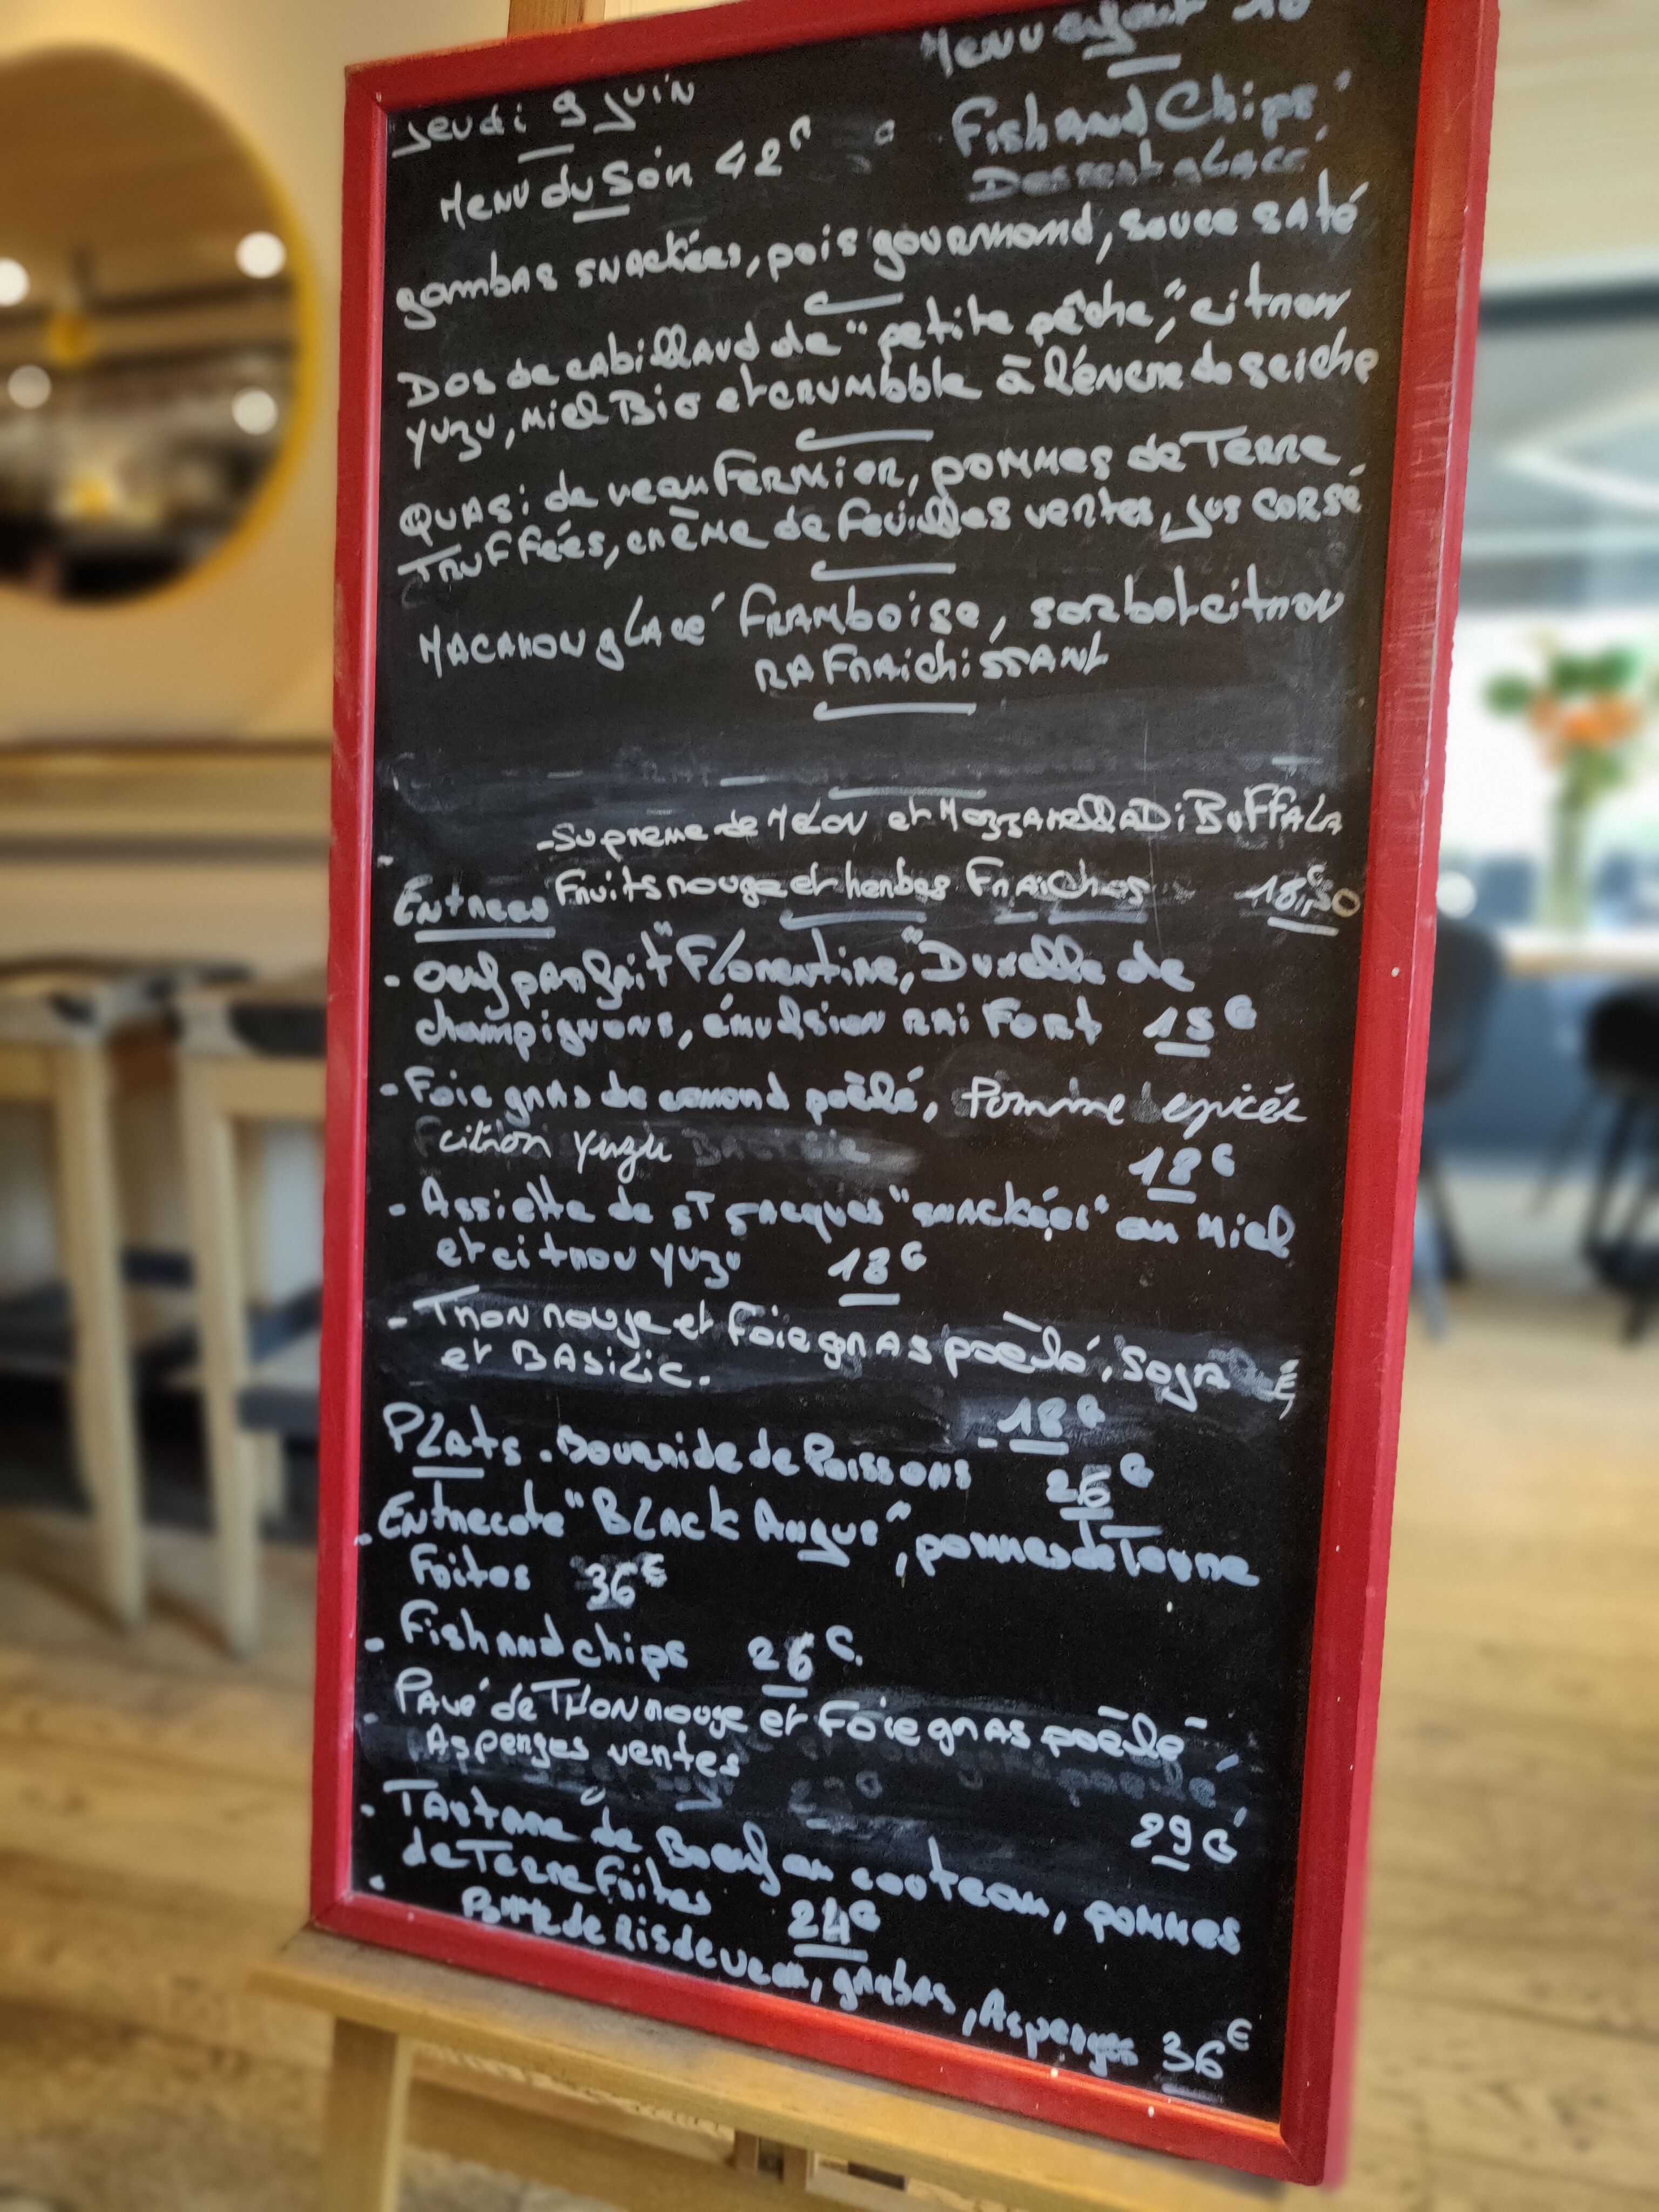 Jeudi 9 Juin
Menu du Soir 42€
Menu enfant 10
Fish and Chips
Dessert glacé
gambas snackées, pois gourmand, sauce saté
Dos de cabillaud de "petite pêche", citron
yuzu, miel Bio et crumbble à l'encre de seiche
Quasi de veau Fermier, pommes de Terre
Truffées, crème de feuilles vertes, jus corsé
Macaron glacé Framboise, sorbet citron
Rafraichissant
- Supreme de Melon et Mozzarella Di Buffala
Entrees Fruits rouge et herbes Fraiches 18,50€
- Oeuf parfait "Florentine", Duxelle de
champignons, émulsion raifort 15€
- Foie gras de canard poêlé, Pomme epicée
citron yuzu 18€
- Assiette de ST Jacques "snackées" au miel
et citron yuzu 18€
- Thon rouge et Foie gras poêlé, Soya
et Basilic.
- 18€
Plats - Bourride de Poissons 26€
- Entrecote "Black Angus", pommes de Terre
Frites 36€
- Fish and chips 26€.
- Pavé de Thon rouge et Foie gras poêlé,
Asperges vertes
29€
- Tartare de Boeuf au couteau, pommes
de Terre Frites 24€
- Pomme de Ris de veau, gambas, Asperges 36€